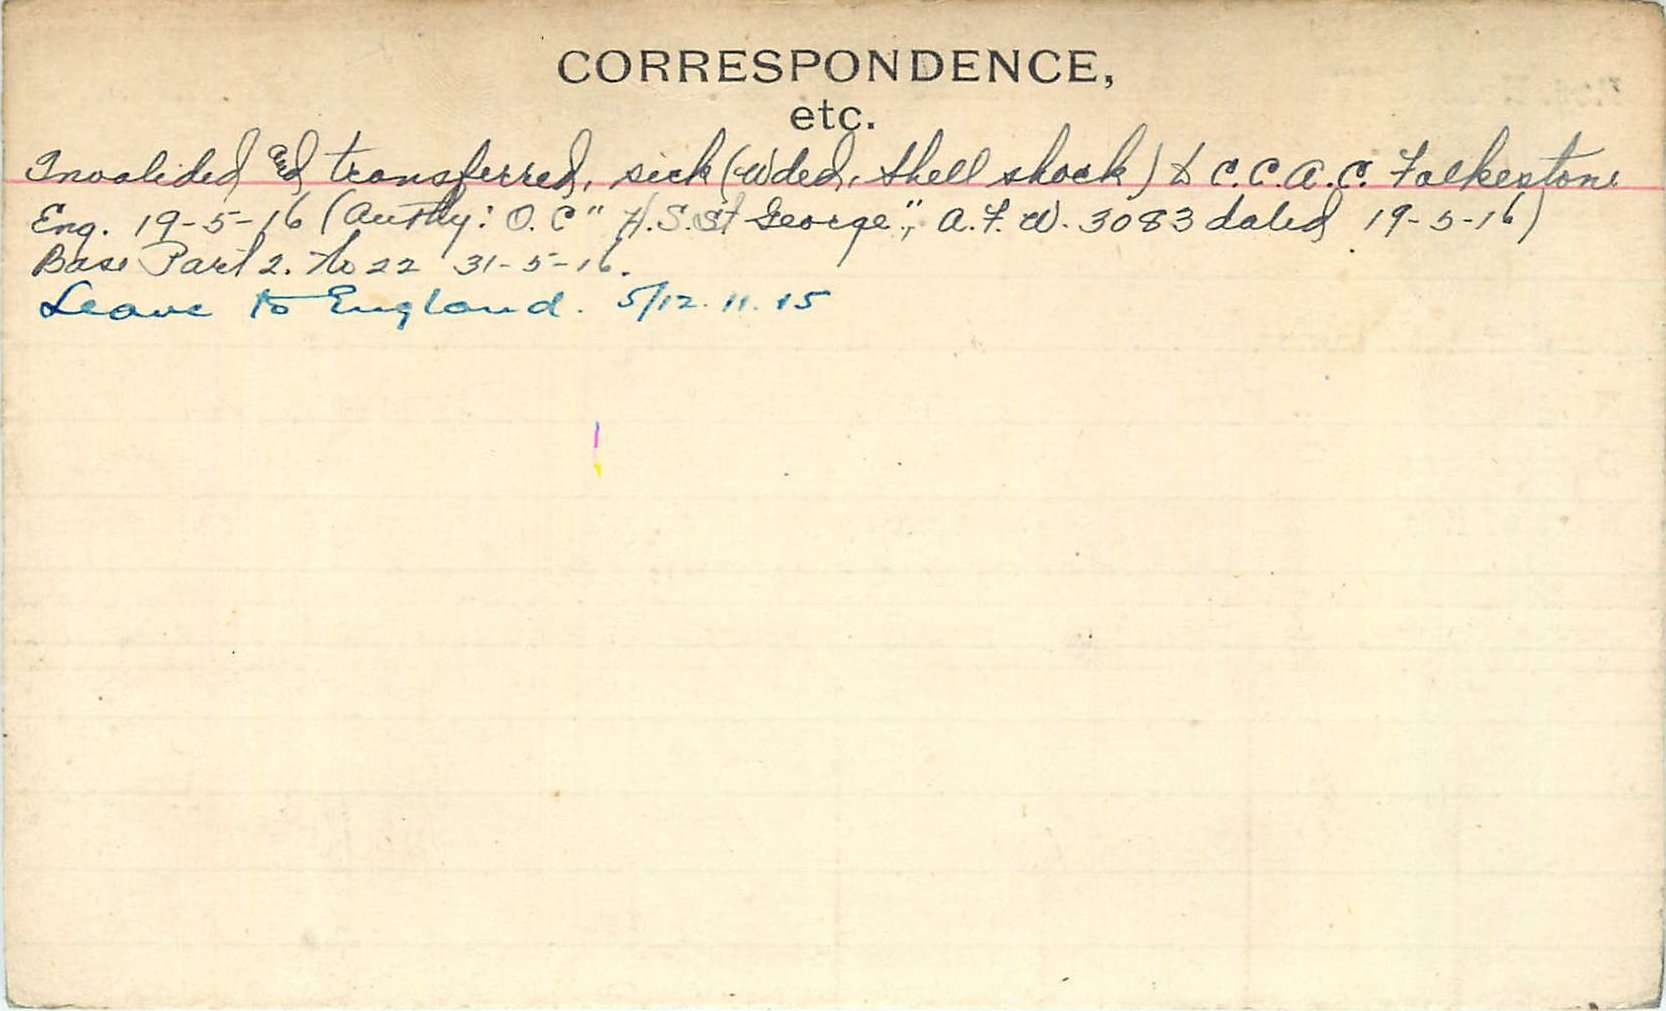 CORRESPONDENCE,
etc.
Invalided and transferred, sick (Wded, Shell shock) to C.C.A.C. Folkestone
Eng. 19-5-16 (Authy: O.C "H.S. St George", A.F.W. 3083 dated 19-5-16)
Base Part 2. No 22 31-5-16.
Leave to England. 5/12.11.15